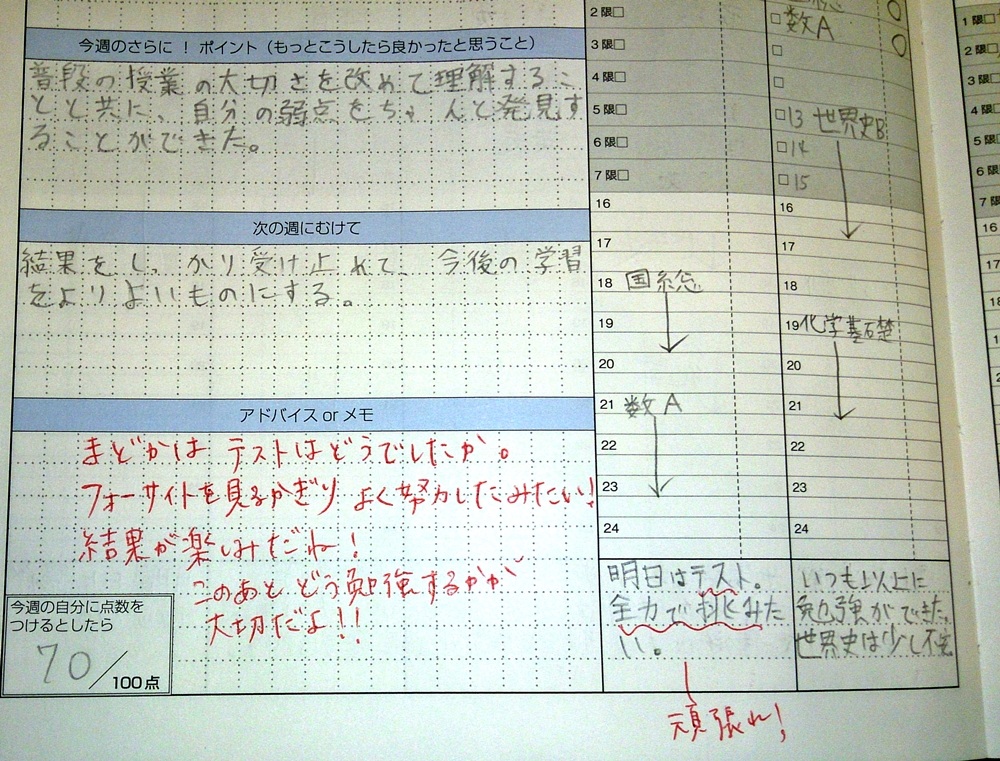 今週のさらに！ポイント（もっとこうしたら良かったと思うこと）
普段の授業の大切さを改めて理解するこ
とと共に、自分の弱点をちゃんと発見す
ることができた。
次の週にむけて
結果をしっかり受け止めて、今後の学習
をよりよいものにする。
アドバイス or メモ
まどかは テストはどうでしたか。
フォーサイトを見るかぎり よく努力したみたい!
結果が楽しみだね!
このあと どう勉強するかが
大切だよ!!
今週の自分に点数を
つけるとしたら
70/100点
2限□
3限□
4限□
5限□
6限□
7限□
16
17
18 国総
19
20
21 数A
22
23
24
明日はテスト。
全力で挑みた
い。
頑張れ!
□数A
□
□
□13 世界史B
□14
□15
16
17
18
19 化学基礎
20
21
22
23
24
いつも以上に
勉強ができた。
世界史は少し不安
1限□
2限□
3限
4限
5限
6限
7限
16
17
18